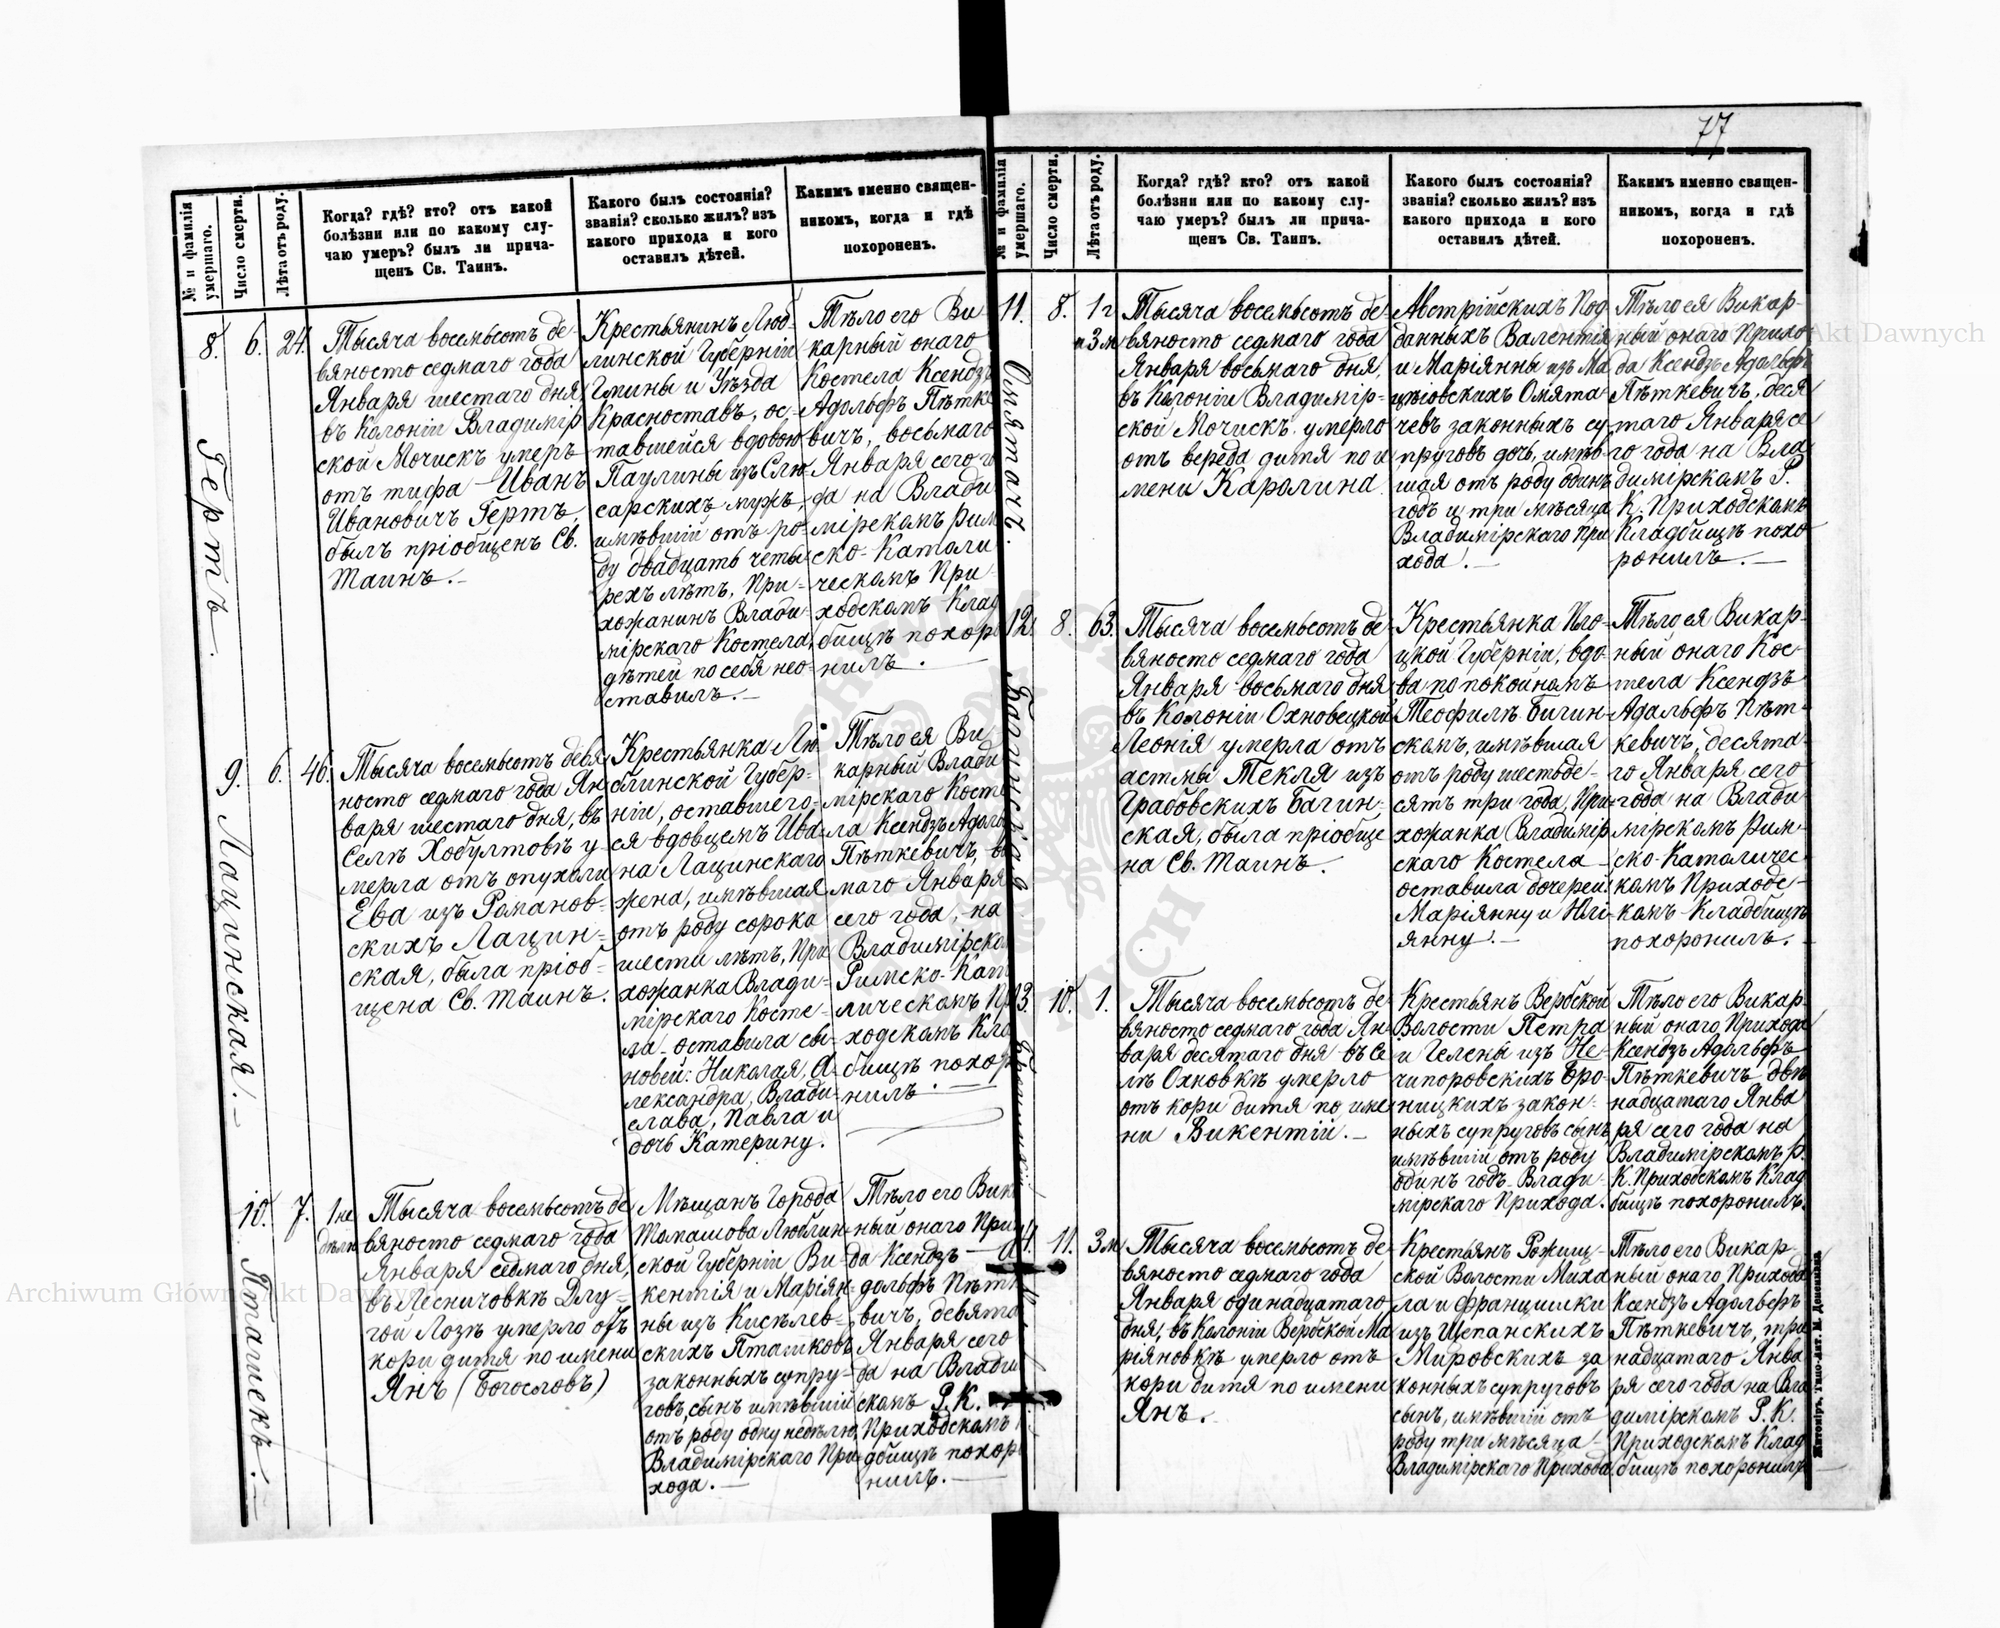 77
№ и фамилія умершаго.
Число смерти.
Лѣта отъ роду.
Когда? гдѣ? кто? отъ какой
болѣзни или по какому слу-
чаю умеръ? былъ ли прича-
щенъ Св. Таинъ.
Какого былъ состоянія?
званія? сколько жилъ? изъ
какого прихода и кого
оставилъ дѣтей.
Какимъ именно священ-
никомъ, когда и гдѣ
похороненъ.
8.
Гертъ
6.
24.
Тысяча восемьсотъ де-
вяносто седмаго года
Января шестаго дня
въ Колоніи Владимір
ской Мочискъ умеръ
отъ тифа Иванъ
Ивановичъ Гертъ,
былъ пріобщенъ Св.
Таинъ.
Крестьянинъ Люб-
линской Губерніи
Гмины и Уѣзда
Красноставъ, ос-
тавшейся вдовою
Паулины изъ Слю-
сарскихъ мужъ,
имѣвшій отъ ро-
ду двадцать четы-
рехъ лѣтъ, При-
хожанинъ Влади-
мірскаго Костела,
дѣтей по себя нео-
ставилъ.
Тѣло его Ви
карный онаго
Костела Ксендзъ
Адольфъ Пѣтке
вичъ, восьмаго
Января сего го
да на Влади
мірскомъ Рим
ско-Католи
ческомъ При-
ходскомъ Клад
бищѣ похоро
нилъ.
9.
Лацинская
6.
46.
Тысяча восемьсотъ девя
носто седмаго года Ян
варя шестаго дня, въ
Селѣ Хобултовѣ у-
мерла отъ опухоли
Ева изъ Романов-
скихъ Лацин-
ская, была пріоб-
щена Св. Таинъ.
Крестьянка Лю-
блинской Губер-
ніи, оставшего-
ся вдовцемъ Ива-
на Лацинскаго
жена, имѣвшая
отъ роду сорока
шести лѣтъ, При
хожанка Влади-
мірскаго Косте-
ла оставила сы-
новей: Николая, А-
лександра, Влади-
слава, Павла и
дочь Катерину.
Тѣло ея Ви
карный Влади
мірскаго Косте
ла Ксендзъ Адоль
Пѣткевичъ, во
маго Января
сего года, на
Владимірско
Римско-Като
лическомъ Пр
ходскомъ Кла
бищѣ похор
нилъ.
10.
Пташекъ
7.
1 не
дѣли
Тысяча восемьсотъ де
вяносто седмаго года
Января седмаго дня,
въ Лесничовкѣ Длу-
гой Лозѣ умерло отъ
кори дитя по имени
Янъ (Богословъ)
Мѣщанъ Города
Томашова Люблин-
ской Губерніи Ви-
кентія и Маріян-
ны изъ Кисѣлев-
скихъ Пташковъ
законныхъ супру-
говъ, сынъ имѣвшій
отъ роду одну недѣлю,
Владимірскаго При-
хода.
Тѣло его Вика
ный онаго При
да Ксендзъ А
дольфъ Пѣтк
вичъ, девята
Января сего
да на Влади
скомъ Р. К.
Приходскомъ
дбищѣ похоро
нилъ.
№ и фамилія умершаго.
Число смерти.
Лѣта отъ роду.
Когда? гдѣ? кто? отъ какой
болѣзни или по какому слу-
чаю умеръ? былъ ли прича-
щенъ Св. Таинъ.
Какого былъ состоянія?
званія? сколько жилъ? изъ
какого прихода и кого
оставилъ дѣтей.
Какимъ именно священ-
никомъ, когда и гдѣ
похороненъ.
11.
Омятачъ.
8.
1 г
и 3 м
Тысяча восемьсотъ де-
вяносто седмаго года
Января восьмаго дня,
въ Колоніи Владимір-
ской Мочискъ умерло
отъ вереда дитя по и
мени Каролина.
Австрійскихъ Под
данныхъ Валентія
и Маріянны изъ Ма
цѣіовскихъ Омята-
чевъ законныхъ су
пруговъ дочь, имѣв-
шая отъ роду одинъ
годъ и три мѣсяца
Владимірскаго При
хода.
Тѣло ея Викар-
ный онаго Прихо
да Ксендзъ Адольфъ
Пѣткевичъ, деся
таго Января се
го года на Вла
димірскомъ Р.
К. Приходскомъ
Кладбищѣ похо
ронилъ.
12.
Багинская
8.
63.
Тысяча восемьсотъ де-
вяносто седмаго года
Января восьмаго дня
въ Колоніи Охновецкой
Леонія умерла отъ
астмы Текля изъ
Грабовскихъ Багин-
ская, была пріобще
на Св. Таинъ.
Крестьянка Пло-
цкой Губерніи, вдо
ва по покойномъ
Теофилѣ Бигин-
скомъ, имѣвшая
отъ роду шестьде-
сятъ три года, При-
хожанка Владимір
скаго Костела
оставила дочерей:
Маріянну и Юлі-
янну.
Тѣло ея Викар-
ный онаго Кос-
тела Ксендзъ
Адольфъ Пѣт-
кевичъ, десята-
го Января сего
года на Влади-
мірскомъ Рим-
ско-Католичес-
комъ Приходс-
комъ Кладбищѣ
похоронилъ.
13.
10.
1.
Тысяча восемьсотъ де-
вяносто седмаго года Ян-
варя десятаго дня въ Се
лѣ Охновкѣ умерло
отъ кори дитя по име
ни Викентій.
Крестьянъ Вербской
Волости Петра
и Гелены изъ Не-
чипоровскихъ Бро-
ницкихъ закон-
ныхъ супруговъ сынъ
имѣвшій отъ роду
одинъ годъ Влади-
мірскаго Прихода.
Тѣло его Викар-
ный онаго Прихода
Ксендзъ Адольфъ
Пѣткевичъ двѣ
надцатаго Янва
ря сего года на
Владимірскомъ Р.
К. Приходскомъ Клад
бищѣ похоронилъ.
11.
3 м
Тысяча восемьсотъ де-
вяносто седмаго года
Января одинадцатаго
дня, въ Колоніи Вербской Ма
ріяновкѣ умерло отъ
кори дитя по имени
Янъ.
Крестьянъ Рожищ-
ской Волости Миха
ла и Францишки
изъ Щепанскихъ
Мировскихъ за
конныхъ супруговъ
сынъ, имѣвшій отъ
роду три мѣсяца
Владимірскаго Прихода.
Тѣло его Викар-
ный онаго Прихода
Ксендзъ Адольфъ
Пѣткевичъ, три
надцатаго Янва
ря сего года на Вла
димірскомъ Р. К.
Приходскомъ Клад
бищѣ похоронилъ
Житоміръ. Типо-лит. М. Дененмана
Archiwum Główne Akt Dawnych
Archiwum Główne Akt Dawnych